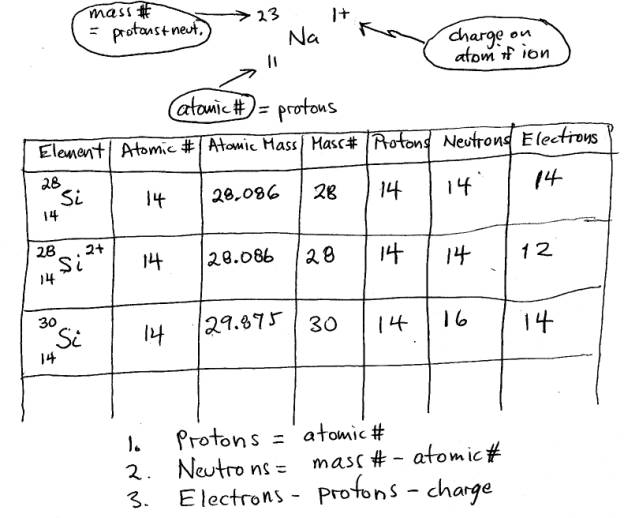 mass # 23 1+
= protons+neut. Na charge on
atom if ion
11
atomic# = protons
Element Atomic # Atomic Mass Mass# Protons Neutrons Electrons
28 Si 14 14 28.086 28 14 14 14
28 Si 2+ 14 14 28.086 28 14 14 12
30 Si 14 14 29.875 30 14 16 14
1. Protons = atomic#
2. Neutrons = mass # - atomic#
3. Electrons - protons - charge